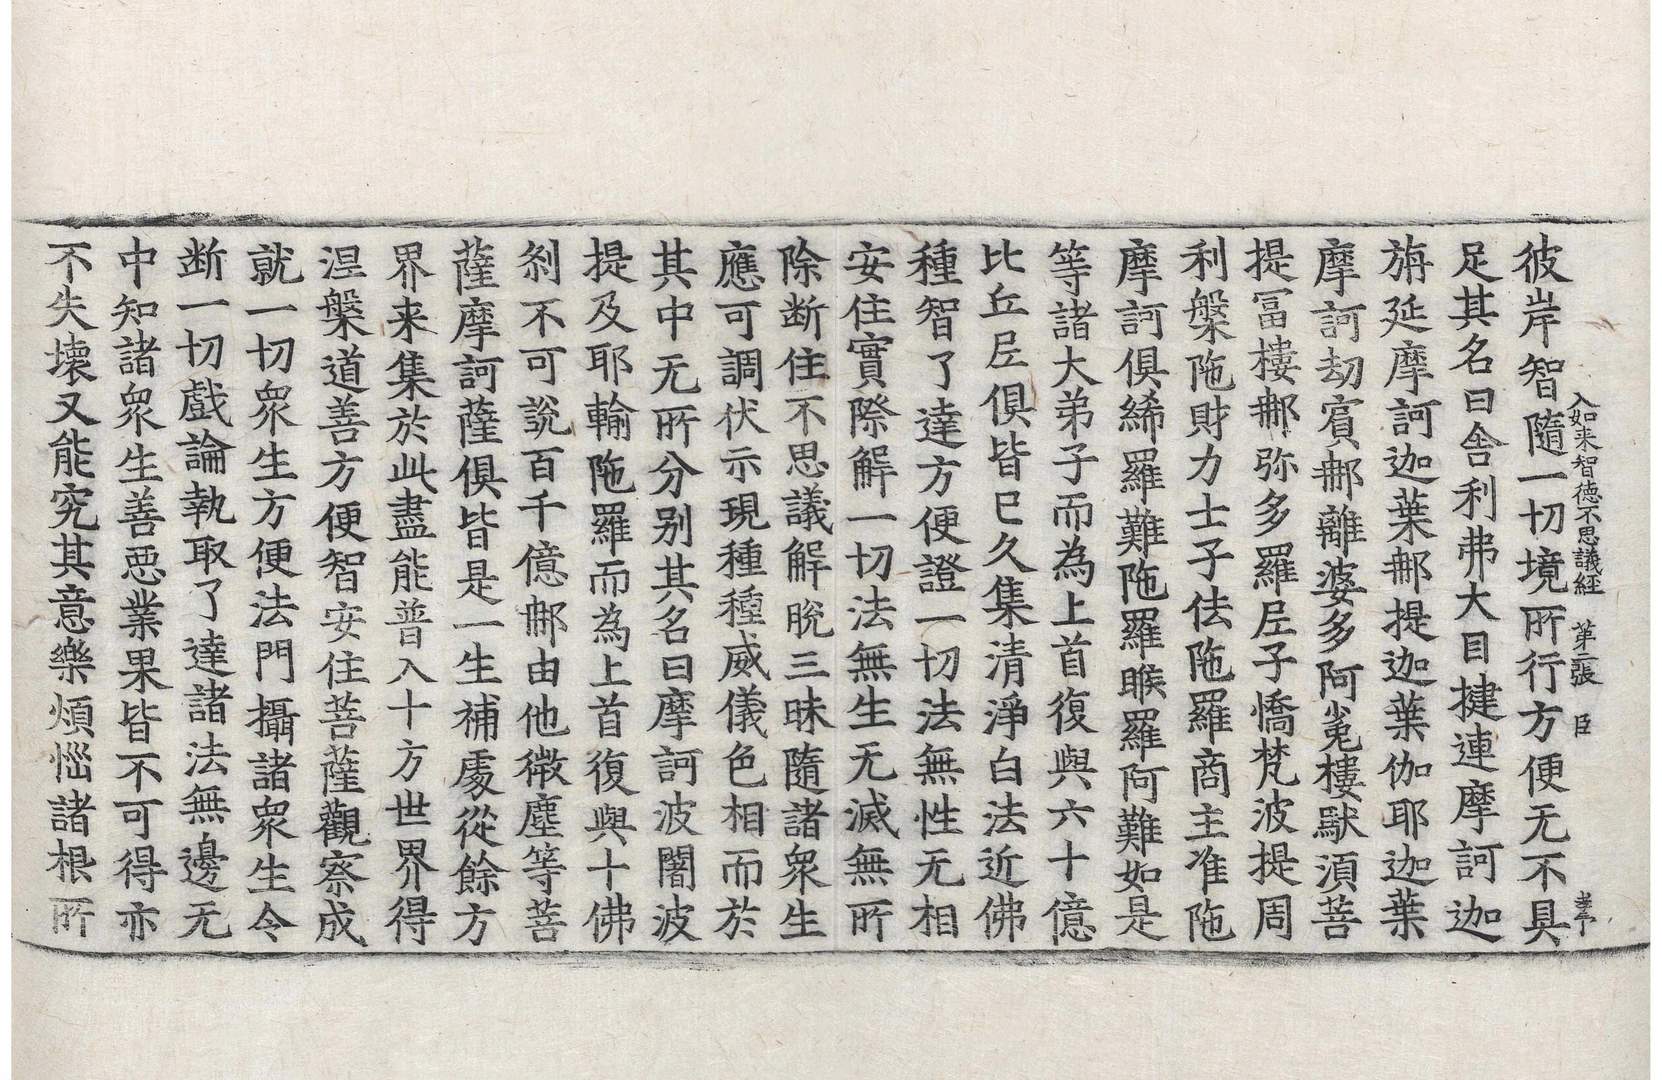 入如来智德不思議經 第二張 臣
彼岸智隨一切境所行方便无不具
足其名曰舍利弗大目揵連摩訶迦
旃延摩訶迦葉𨚗提迦葉伽耶迦葉
摩訶劫賓𨚗離婆多阿㝹樓馱湏菩
提冨樓𨚗弥多羅𡰱子憍梵波提周
利槃陁財力士子佉陁羅商主准陁
摩訶俱絺羅難陁羅睺羅阿難如是
等諸大弟子而為上首復與六十億
比丘𡰱俱皆已久集清淨白法近佛
種智了達方便證一切法無性无相
安住實際解一切法無生无滅無所
除断住不思議解脫三昧隨諸衆生
應可調伏示現種種威儀色相而於
其中无所分別其名曰摩訶波闍波
提及耶輸陁羅而為上首復與十佛
刹不可說百千億𨚗由他微塵等菩
薩摩訶薩俱皆是一生補處從餘方
界来集於此盡能普入十方世界得
涅槃道善方便智安住菩薩觀察成
就一切衆生方便法門攝諸衆生令
断一切戲論執取了達諸法無邊无
中知諸衆生善惡業果皆不可得亦
不失壞又能究其意樂煩惱諸根所